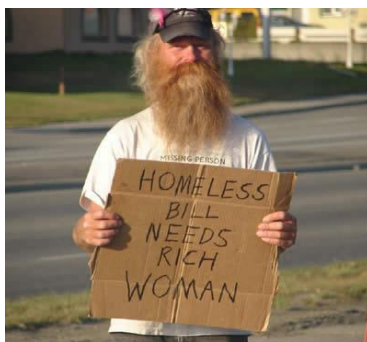 MISSING PERSON
HOMELESS
BILL
NEEDS
RICH
WOMAN